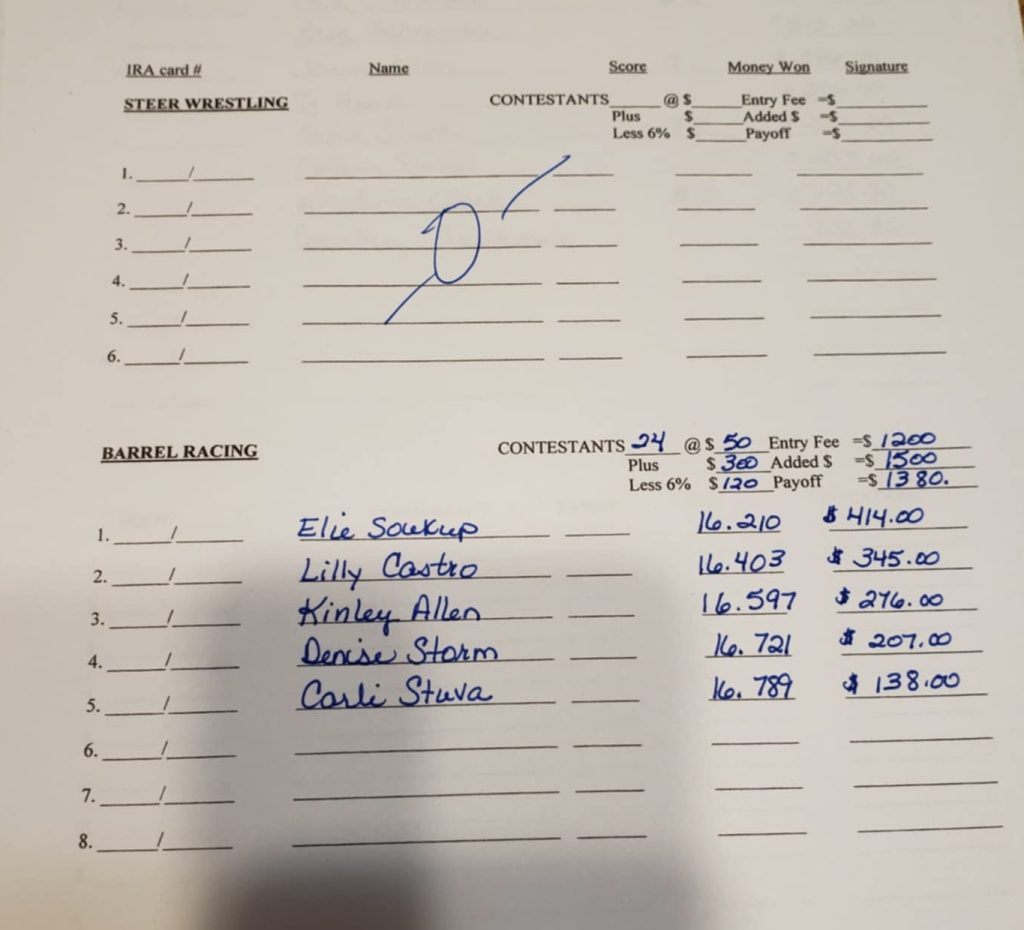 IRA card # Name Score Money Won Signature
STEER WRESTLING CONTESTANTS______@ $______Entry Fee =$__________
Plus $______Added $ =$__________
Less 6% $______Payoff =$__________
1. ______/______
2. ______/______
3. ______/______
4. ______/______
5. ______/______
6. ______/______
0
BARREL RACING CONTESTANTS 24 @ $ 50 Entry Fee =$ 1200
Plus $ 300 Added $ =$ 1500
Less 6% $ 120 Payoff =$ 1380.
1. ______/______ Elie Soukup 16.210 $ 414.00
2. ______/______ Lilly Castro 16.403 $ 345.00
3. ______/______ Kinley Allen 16.597 $ 276.00
4. ______/______ Denise Storm 16.721 $ 207.00
5. ______/______ Carli Stuva 16.789 $ 138.00
6. ______/______
7. ______/______
8. ______/______